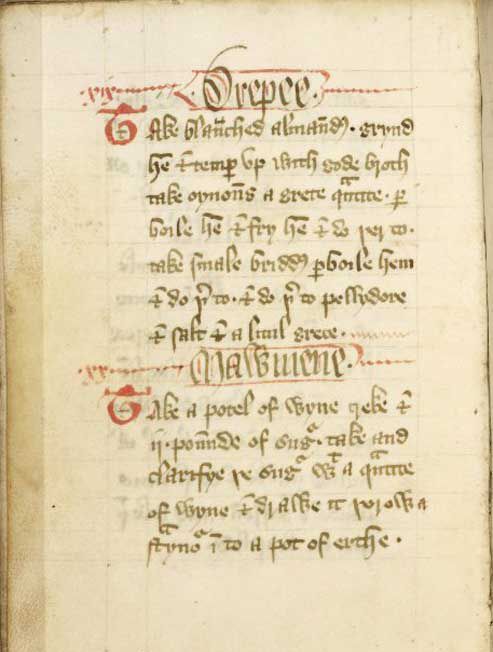 .xix. Drepee.
Take blaūched almand̛. grynd
hē & temꝑ vp with gode broth
take oynoūs a grete qᵃtite. ꝑ
boile hē & fry hē & do þer to.
take smale bridd̛ ꝑboile hem
& do þ̛ to. & do þ̛ to pellydore
& salt & a litul grece.
.xx. Mawmene.
Take a potel of wyne greke &
ii. poūde of sug̛. take and
clarifye þe sug̛ wᵗ a qᵃtite
of wyne & drawe it þorow a
stᵃynơ ī to a pot of erthe.